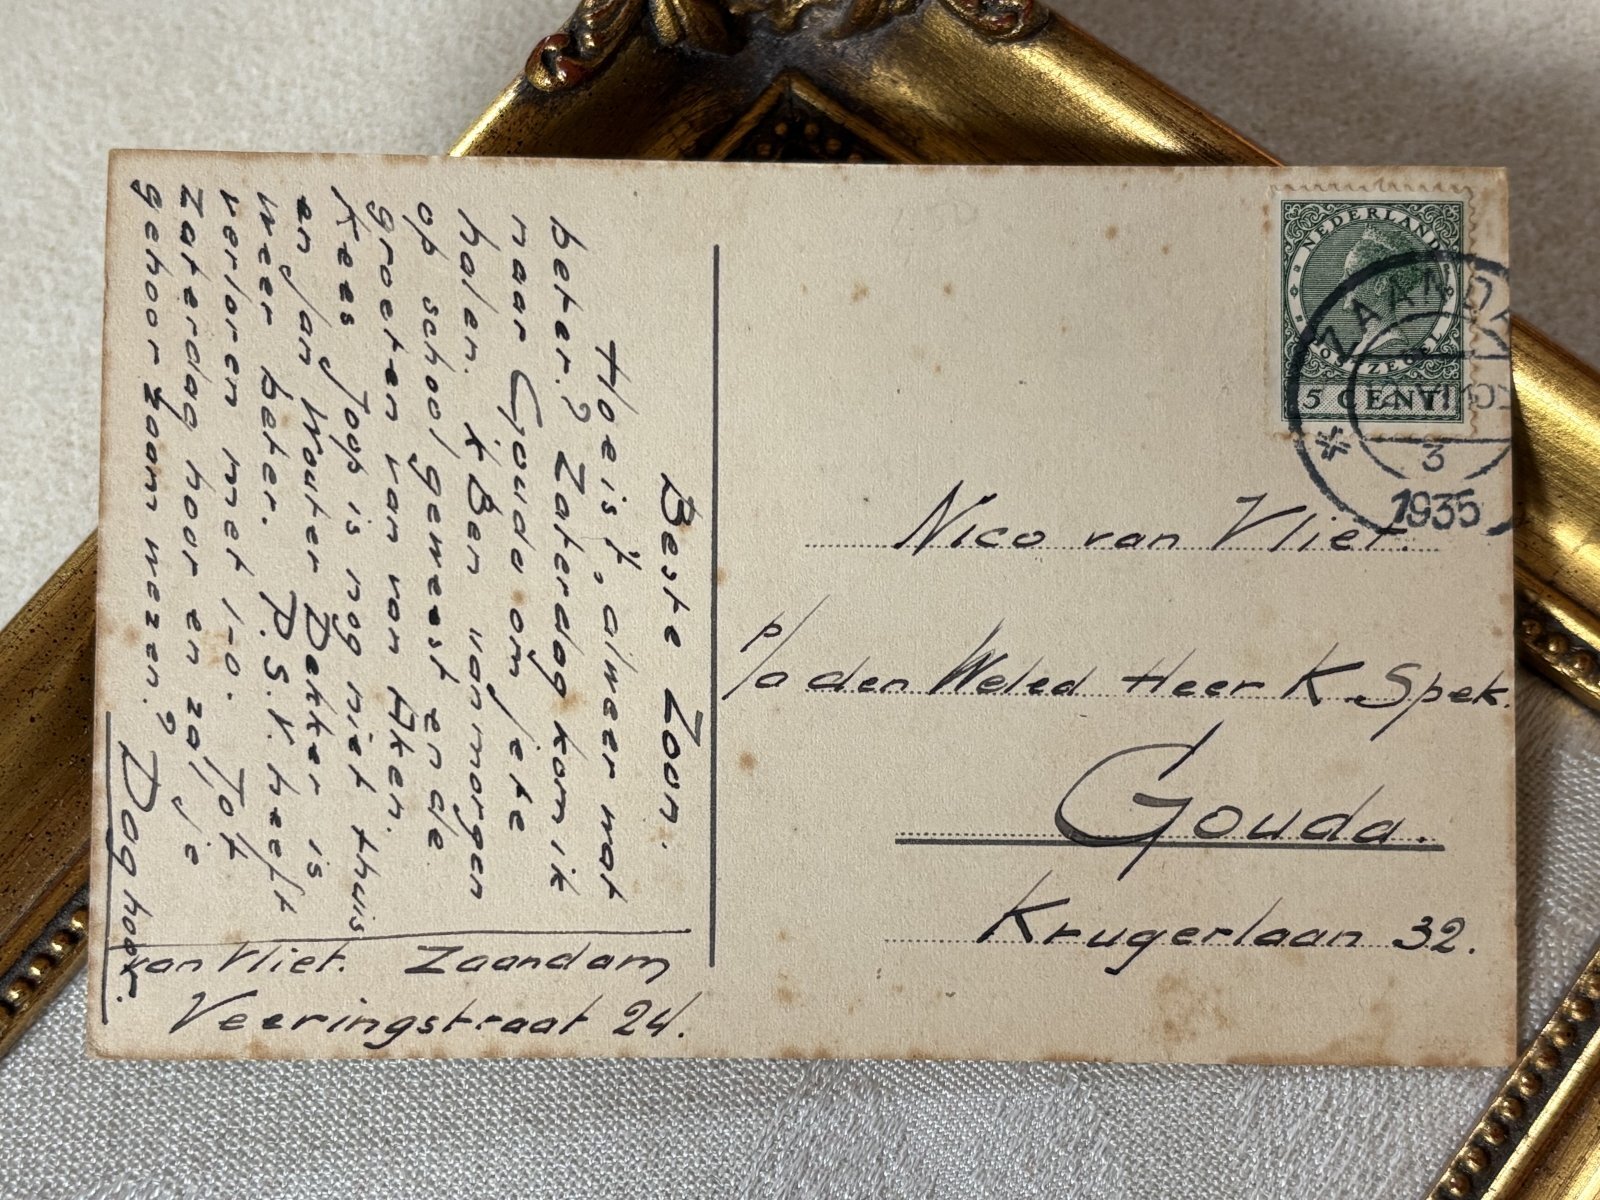 Beste Zoon.
Hoe is 't, al weer wat
beter? Zaterdag kom ik
naar Gouda om je te
halen. k Ben vanmorgen
op school geweest en de
groeten van van Aken.
Kees Joop is nog niet thuis
en Jan Wouter Dekker is
weer beter. P.S.V. heeft
verloren met 1-0. Tot
Zaterdag hoor en zal je
gehoorzaam wezen? Dag hoor.
van Vliet. Zaandam
Veeringstraat 24.
NEDERLAND
5 CENT
ZAANDA
3
1935
Nico van Vliet.
p/a den Weled Heer K. Spek.
Gouda.
Krugerlaan 32.